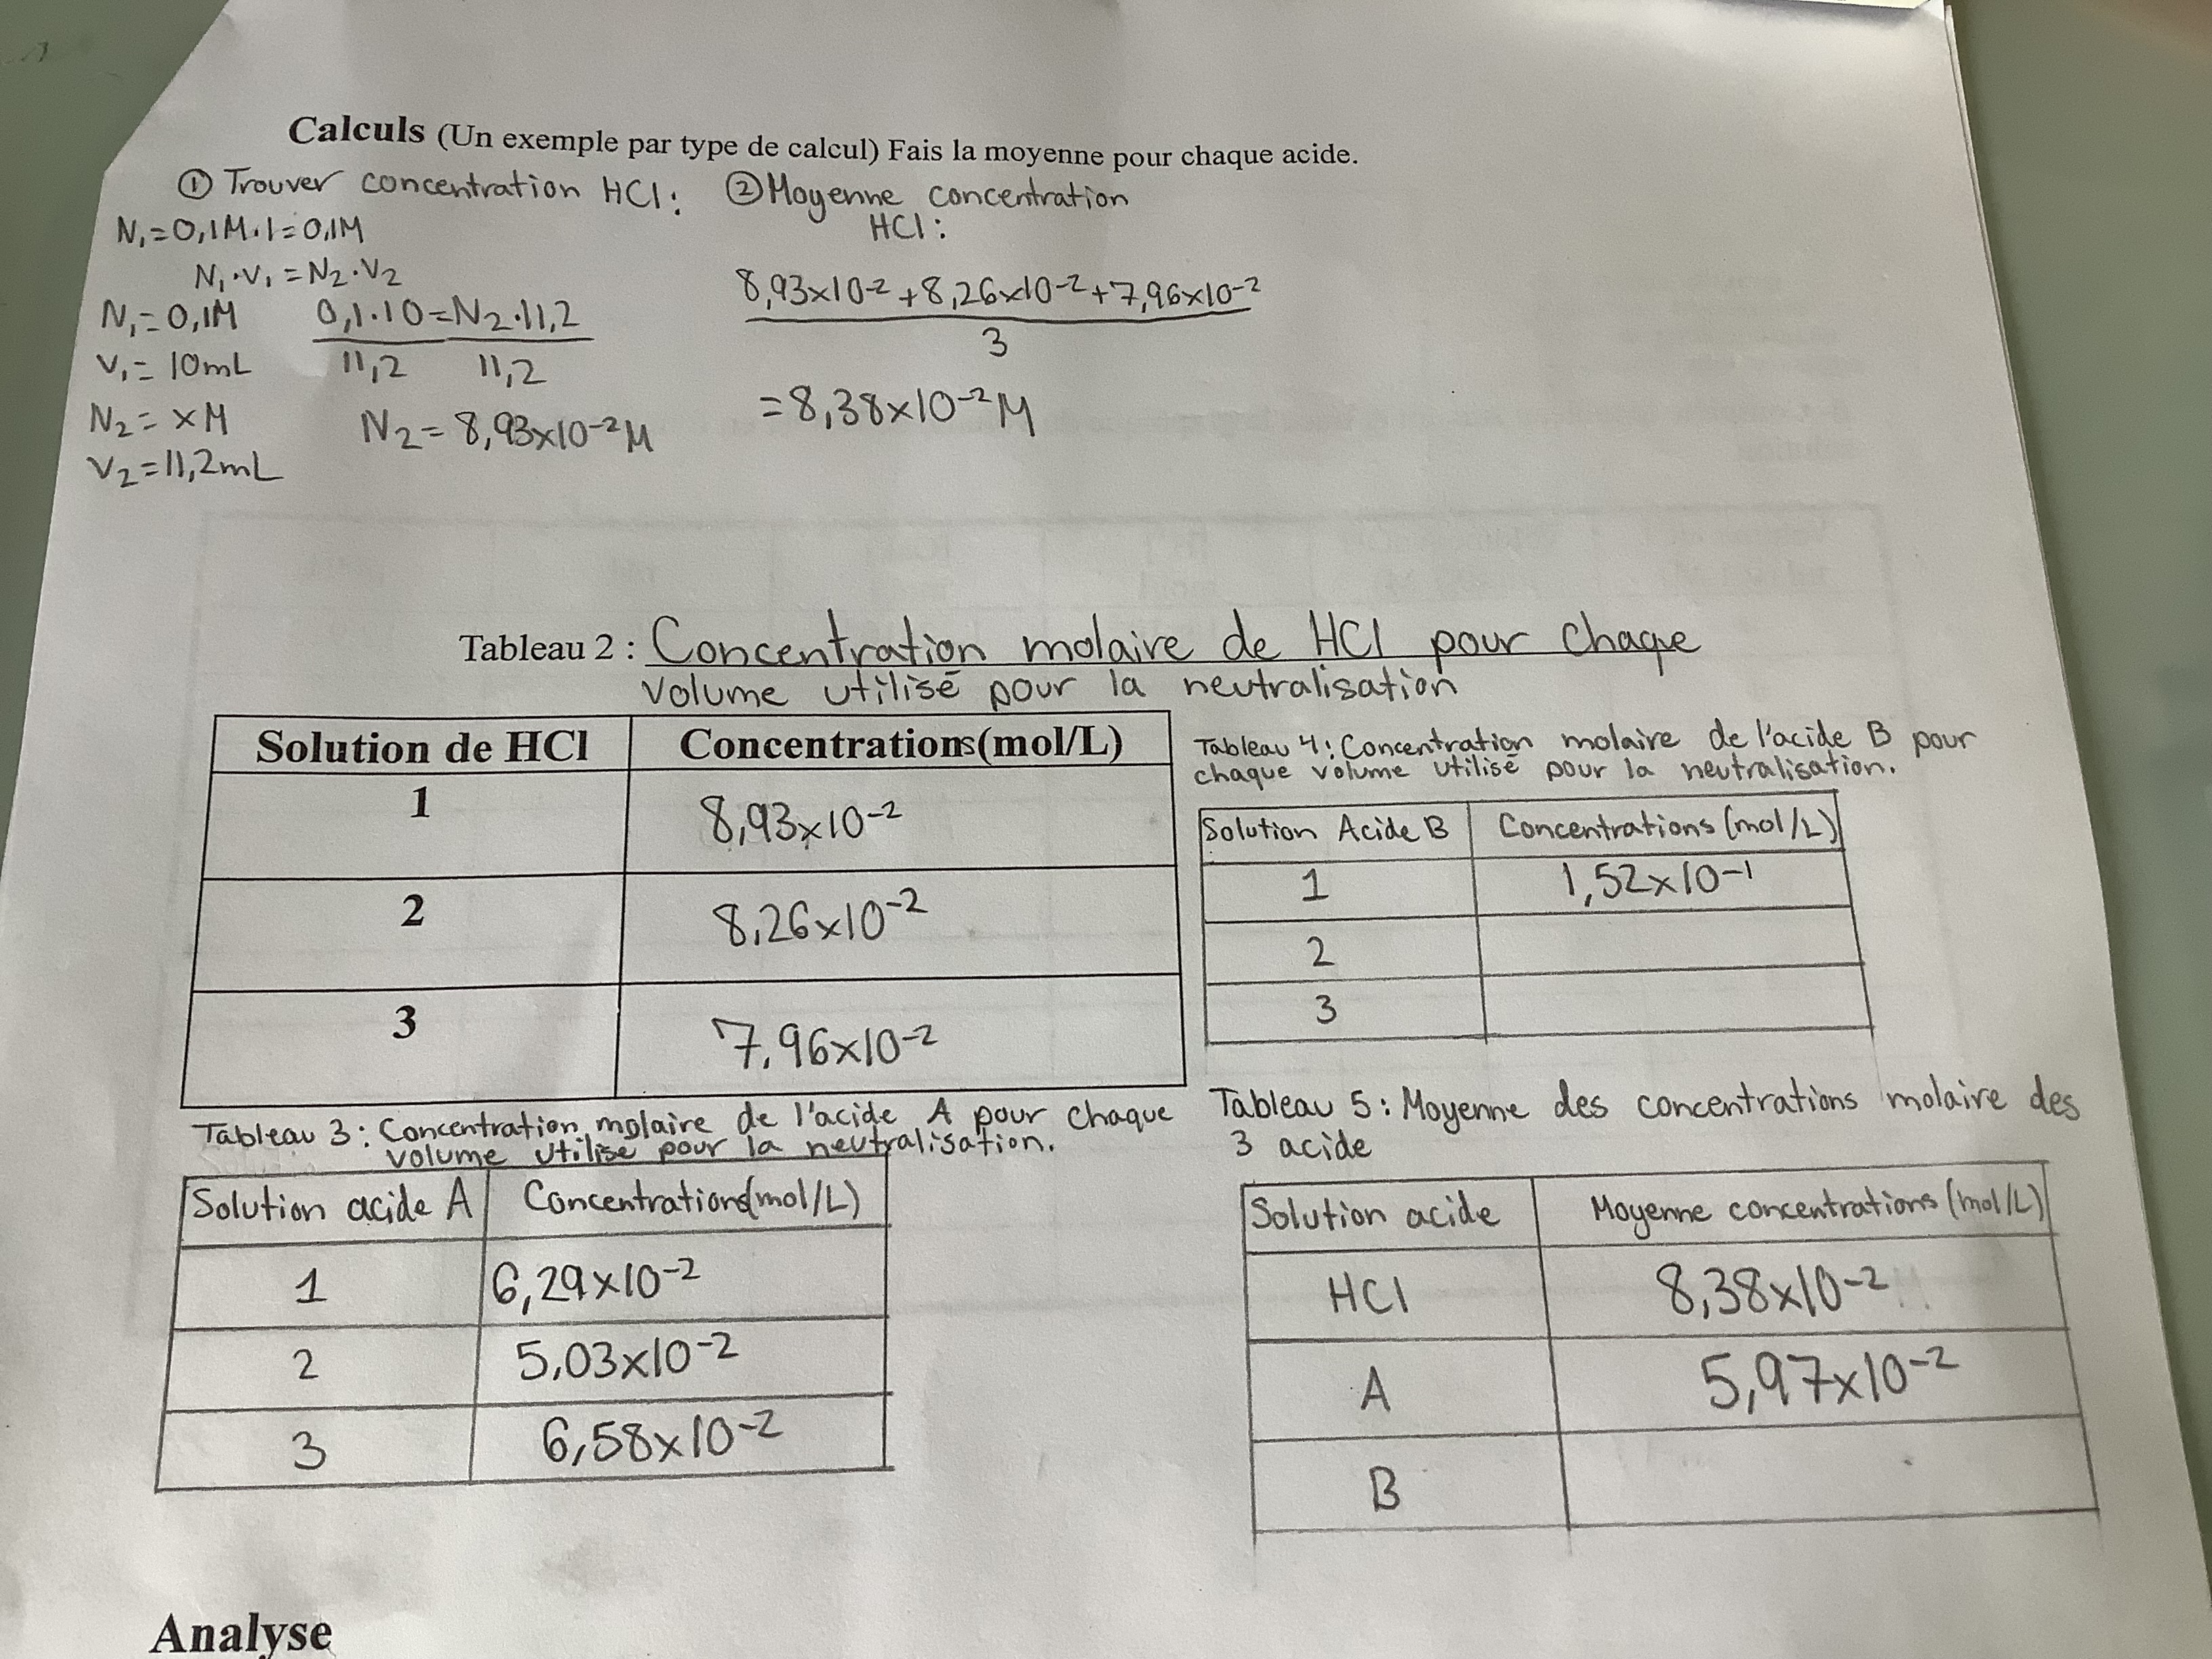 Calculs (Un exemple par type de calcul) Fais la moyenne pour chaque acide.
① Trouver concentration HCl:
N₁=0,1M·1=0,1M
N₁·V₁=N₂·V₂
N₁=0,1M
V₁=10mL
N₂=xM
V₂=11,2mL
0,1·10=N₂·11,2
11,2 11,2
N₂=8,93x10⁻²M
② Moyenne concentration
HCl:
8,93x10⁻²+8,26x10⁻²+7,96x10⁻²
3
=8,38x10⁻²M
Tableau 2 : Concentration molaire de HCl pour chaque
volume utilisé pour la neutralisation
Solution de HCl Concentrations(mol/L)
1 8,93x10⁻²
2 8,26x10⁻²
3 7,96x10⁻²
Tableau 4: Concentration molaire de l'acide B pour
chaque volume utilisé pour la neutralisation.
Solution Acide B Concentrations (mol/L)
1 1,52x10⁻¹
2
3
Tableau 3: Concentration molaire de l'acide A pour chaque
volume utilisé pour la neutralisation.
Solution acide A Concentrations(mol/L)
1 6,29x10⁻²
2 5,03x10⁻²
3 6,58x10⁻²
Tableau 5: Moyenne des concentrations molaire des
3 acide
Solution acide Moyenne concentrations (mol/L)
HCl 8,38x10⁻²
A 5,97x10⁻²
B
Analyse